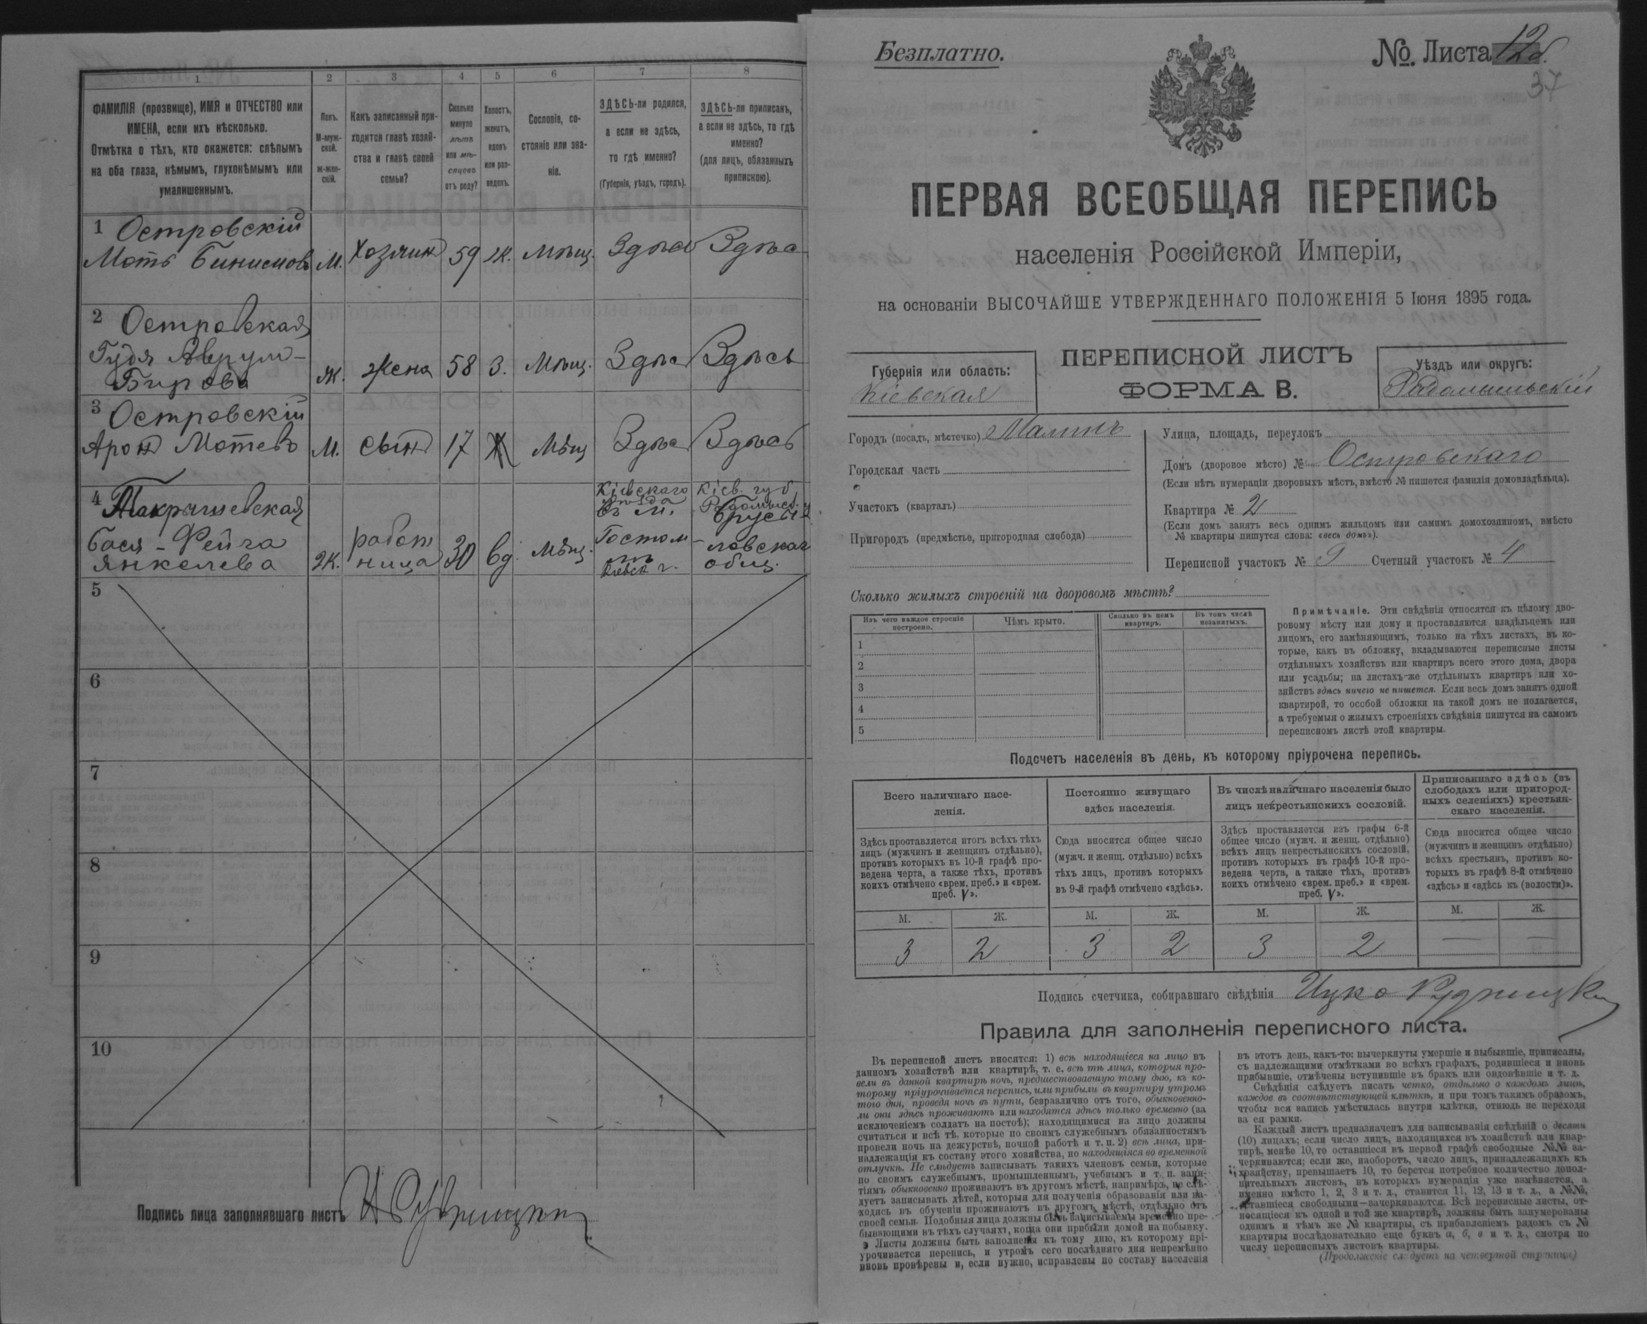 1
2
3
4
5
6
7
8
ФАМИЛІЯ (прозвище), ИМЯ и ОТЧЕСТВО или
ИМЕНА, если ихъ нѣсколько.
Отмѣтка о тѣхъ, кто окажется: слѣпымъ
на оба глаза, нѣмымъ, глухонѣмымъ или
умалишеннымъ.
Полъ.
М-муж-
ской.
ж-жен-
скій.
Какъ записанный при-
ходится главѣ хозяй-
ства и главѣ своей
семьи?
Сколько
минуло
лѣтъ
или мѣ-
сяцевъ
отъ роду?
Холостъ,
женатъ,
вдовъ
или раз-
веденъ.
Сословіе, со-
стояніе или зва-
ніе.
ЗДѢСЬ-ли родился,
а если не здѣсь,
то гдѣ именно?
(Губернія, уѣздъ, городъ).
ЗДѢСЬ-ли приписанъ,
а если не здѣсь, то гдѣ
именно?
(для лицъ, обязанныхъ
припискою).
1 Островскій
Моть м. Хозяин 59 ж. мѣщ. Здѣсь Здѣсь
2 Островская
Гудя Аврум-
Берова ж. жена 58 З. мѣщ. Здѣсь Здѣсь
3 Островскій
Арон Мотевъ м. сынъ 17 Мѣщ Здѣсь Здѣсь
4
Бася-Фейга
Янкелева ж. работ
ница 30 вд. мѣщ.
Кіевскаго
Гостом
Кіев. губ.
общ.
5
6
7
8
9
10
Подпись лица заполнявшаго листъ
Безплатно.
№. Листа 12б.
37
ПЕРВАЯ ВСЕОБЩАЯ ПЕРЕПИСЬ
населенія Россійской Имперіи,
на основаніи ВЫСОЧАЙШЕ УТВЕРЖДЕННАГО ПОЛОЖЕНІЯ 5 Іюня 1895 года.
ПЕРЕПИСНОЙ ЛИСТЪ
ФОРМА В.
Губернія или область:
Кіевская
Уѣздъ или округъ:
Радомысльскій
Городъ (посадъ, мѣстечко) Малинъ
Городская часть
Участокъ (кварталъ)
Пригородъ (предмѣстье, пригородная слобода)
Улица, площадь, переулокъ
Домъ (дворовое мѣсто) № Островскаго
(Если нѣтъ нумераціи дворовыхъ мѣстъ, вмѣсто № пишется фамилія домовладѣльца).
Квартира № 2
(Если домъ занятъ весь однимъ жильцомъ или самимъ домохозяиномъ, вмѣсто
№ квартиры пишутся слова: «весь домъ»).
Переписной участокъ № 9 Счетный участокъ № 4
Сколько жилыхъ строеній на дворовомъ мѣстѣ?
Изъ чего каждое строеніе
построено.
Чѣмъ крыто.
Сколько въ немъ
квартиръ.
Въ томъ числѣ
незанятыхъ.
1
2
3
4
5
Примѣчаніе. Эти свѣдѣнія относятся къ цѣлому дво-
ровому мѣсту или дому и проставляются владѣльцемъ или
лицомъ, его замѣняющимъ, только на тѣхъ листахъ, въ ко-
торые, какъ въ обложку, вкладываются переписные листы
отдѣльныхъ хозяйствъ или квартиръ всего этого дома, двора
или усадьбы; на листахъ-же отдѣльныхъ квартиръ или хо-
зяйствъ здѣсь ничего не пишется. Если весь домъ занятъ одной
квартирой, то особой обложки на такой домъ не полагается,
а требуемыя о жилыхъ строеніяхъ свѣдѣнія пишутся на самомъ
переписномъ листѣ этой квартиры.
Подсчетъ населенія въ день, къ которому пріурочена перепись.
Всего наличнаго насе-
ленія.
Здѣсь проставляется итогъ всѣхъ тѣхъ
лицъ (мужчинъ и женщинъ отдѣльно),
противъ которыхъ въ 10-й графѣ про-
ведена черта, а также тѣхъ, противъ
коихъ отмѣчено «врем. преб.» и «врем.
преб. V».
Постоянно живущаго
здѣсь населенія.
Сюда вносится общее число
(мужч. и женщ. отдѣльно) всѣхъ
тѣхъ лицъ, противъ которыхъ
въ 9-й графѣ отмѣчено «здѣсь».
Въ числѣ наличнаго населенія было
лицъ некрестьянскихъ сословій.
Здѣсь проставляется изъ графы 6-й
общее число (мужч. и женщ. отдѣльно)
всѣхъ лицъ некрестьянскихъ сословій,
противъ которыхъ въ графѣ 10-й про-
ведена черта, а также тѣхъ, противъ
коихъ отмѣчено «врем. преб.» и «врем.
преб. V».
Приписаннаго здѣсь (въ
слободахъ или пригород-
ныхъ селеніяхъ) крестьян-
скаго населенія.
Сюда вносится общее число
(мужчинъ и женщинъ отдѣльно)
всѣхъ крестьянъ, противъ ко-
торыхъ въ графѣ 8-й отмѣчено
«здѣсь» и «здѣсь къ (волости)».
М. Ж. М. Ж. М. Ж. М. Ж.
3 2 3 2 3 2 — —
Подпись счетчика, собиравшаго свѣдѣнія Ицко Рудницкій
Правила для заполненія переписного листа.
Въ переписной листъ вносятся: 1) всѣ находящіеся на лицо въ
данномъ хозяйствѣ или квартирѣ, т. е. всѣ тѣ лица, которыя про-
вели въ данной квартирѣ ночь, предшествовавшую тому дню, къ ко-
торому пріурочивается перепись, или прибыли въ квартиру утромъ
того дня, проведя ночь въ пути, безразлично отъ того, обыкновенно-
ли они здѣсь проживаютъ или находятся здѣсь только временно (за
исключеніемъ солдатъ на постоѣ); находящимися на лицо должны
считаться и всѣ тѣ, которые по своимъ служебнымъ обязанностямъ
провели ночь на дежурствѣ, ночной работѣ и т. п. 2) всѣ лица, при-
надлежащія къ составу этого хозяйства, но находящіяся во временной
отлучкѣ. Не слѣдуетъ записывать такихъ членовъ семьи, которые
по своимъ служебнымъ, промышленнымъ, учебнымъ и т. п. заня-
тіямъ обыкновенно проживаютъ въ другомъ мѣстѣ, напримѣръ, не слѣ-
дуетъ записывать дѣтей, которыя для полученія образованія или на-
ходясь въ обученіи проживаютъ въ другомъ мѣстѣ, отдѣльно отъ
своей семьи. Подобныя лица должны быть записываемы временно пре-
бывающими въ тѣхъ случаяхъ, когда они прибыли домой на побывку.
Листы должны быть заполнены къ тому дню, къ которому прі-
урочивается перепись, и утромъ сего послѣдняго дня непремѣнно
вновь провѣрены и, если нужно, исправлены по составу населенія
въ этотъ день, какъ-то: вычеркнуты умершіе и выбывшіе, приписаны,
съ надлежащими отмѣтками во всѣхъ графахъ, родившіеся и вновь
прибывшіе, отмѣчены вступившіе въ бракъ или овдовѣвшіе и т. д.
Свѣдѣнія слѣдуетъ писать четко, отдѣльно о каждомъ лицѣ,
каждое въ соотвѣтствующей клѣткѣ, и при томъ такимъ образомъ,
чтобы вся запись умѣстилась внутри клѣтки, отнюдь не переходя
за ея рамки.
Каждый листъ предназначенъ для записыванія свѣдѣній о десяти
(10) лицахъ; если число лицъ, находящихся въ хозяйствѣ или квар-
тирѣ, менѣе 10, то оставшіеся въ первой графѣ свободные №№ за-
черкиваются; если же, наоборотъ, число лицъ, принадлежащихъ къ
хозяйству, превышаетъ 10, то берется потребное количество допол-
нительныхъ листовъ, въ которыхъ нумерація уже измѣняется, а
именно вмѣсто 1, 2, 3 и т. д., ставится 11, 12, 13 и т. д., а №№,
оставшіеся свободными—зачеркиваются. Всѣ переписные листы, от-
носящіеся къ одной и той же квартирѣ, должны быть занумерованы
однимъ и тѣмъ же № квартиры, съ прибавленіемъ рядомъ съ №
квартиры послѣдовательно еще буквъ а, б, в и т. д., смотря по
числу переписныхъ листовъ квартиры.
(Продолженіе слѣдуетъ на четвертой страницѣ)